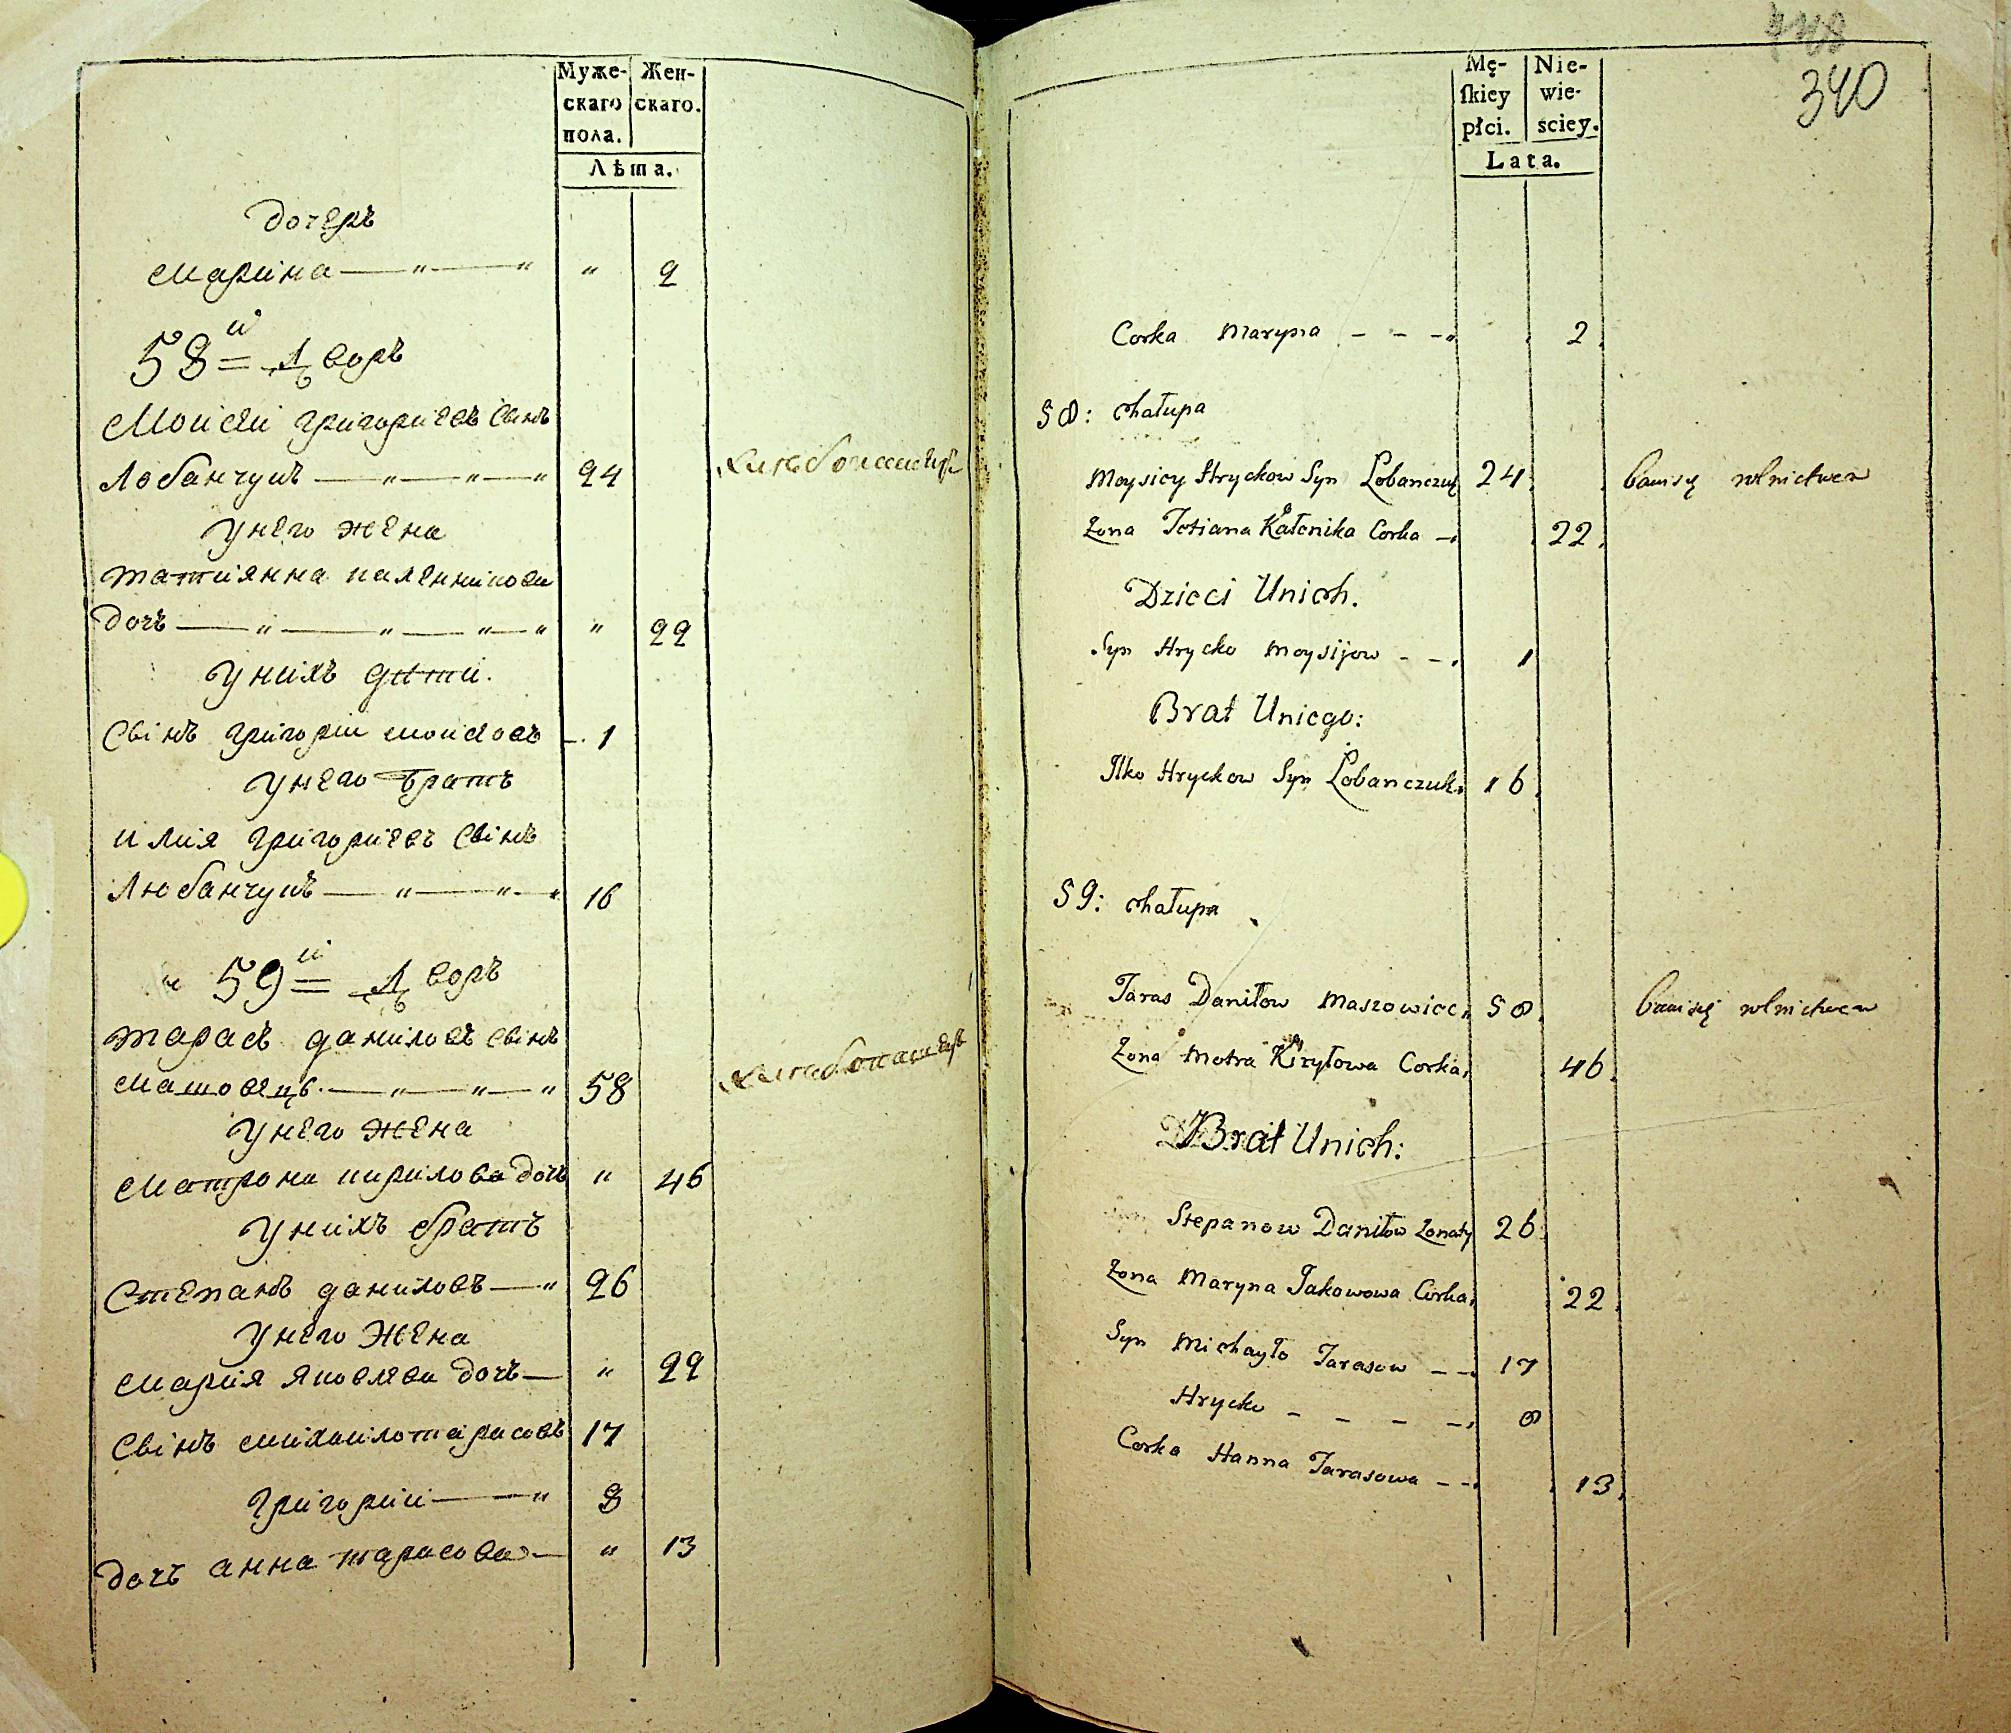 Муже-
скаго
пола.
Жен-
скаго.
Лѣта.
дочеръ
Марина — „ — „ „ 2
58й Дворъ
Моисѣй григориевъ свінъ
Лобанчукъ — „ — „ — „ 24 хлѣбопашецъ
У него жена
татиянна каленникова
дочъ — „ — „ — „ — „ „ 22
У нихъ дѣти.
Свінъ григорій моисѣовъ — 1
У него братъ
илия григориевъ свінъ
Любанчукъ — „ — „ — „ 16
59й Дворъ
тарасъ даниловъ свінъ
машовецъ. — „ — „ — „ 58 хлѣбопашецъ
У него жена
Матрона кирилова дочъ „ 46
У нихъ братъ
Степанъ даниловъ — „ 26
У него жена
Мария яковлева дочъ — „ 22
Свінъ михаило тарасовъ 17
григорий — „ 8
дочъ анна тарасова — „ 13
348
340
Mę-
skiey
płci.
Nie-
wie-
sciey.
Lata.
Corka Maryna - - - 2.
58: chałupa
Moysiey Hryckow Syn Łobanczuk 24. bawi się rolnictwem
Zona Tetiana Kałenika Corka - 22.
Dzieci Unich.
Syn Hrycko Moysijow - - 1
Brat Uniego:
Ilko Hryckow Syn Łobanczuk. 16.
59: chałupa
Taras Daniłow Maszowiec. 58. bawi się rolnictwem
Zona Motra Kiryłowa Corka. 46.
Brat Unich:
Stepanow Daniłow Zonaty 26.
Zona Maryna Jakowowa Corka. 22.
Syn Michayło Tarasow - - 17
Hrycko - - - - 8
Corka Hanna Tarasowa - - 13.